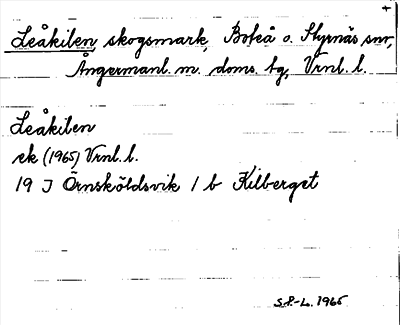 +
Leåkilen, skogsmark, Boteå o. Styrnäs snr,
Ångermanl. m. doms. tg, Vrnl. l.
Leåkilen
ek (1965) Vrnl. l.
19 J Örnsköldsvik 1 b Kilberget
S.P.-L. 1965